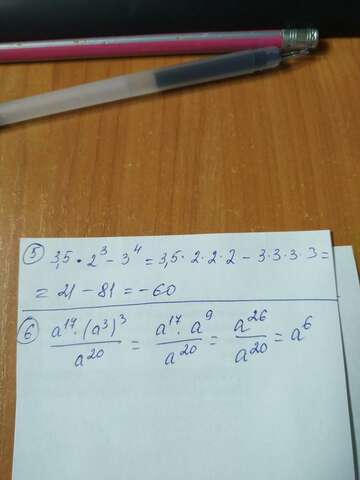 ⑤ 3,5 • 2³ - 3⁴ = 3,5 · 2 · 2 · 2 - 3·3·3·3 =
= 21 - 81 = -60
⑥ a¹⁷ · (a³)³ / a²⁰ = a¹⁷ · a⁹ / a²⁰ = a²⁶ / a²⁰ = a⁶